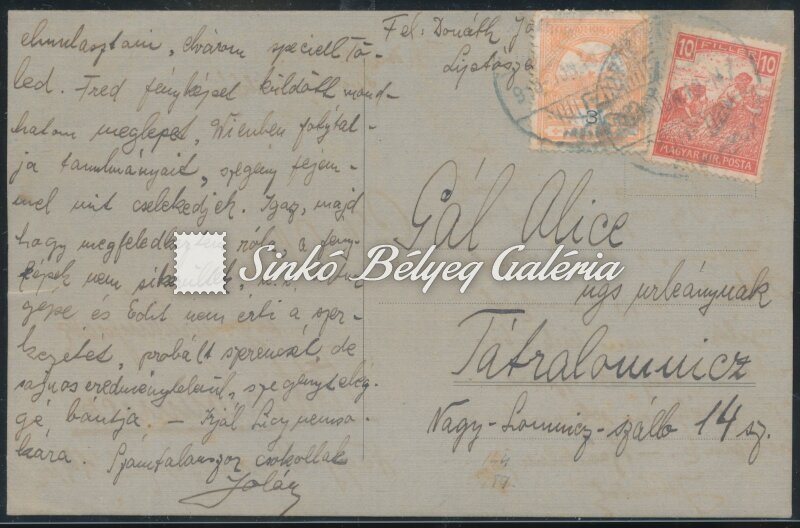 elmulasztani, elvárom speciell Tő-
led. Fred fényképet küldött mond-
hatom meglepet, Wienben folytat-
ja tanulmányait, szegény fejem-
mel mit cselekedjek. Igaz, majd
hogy megfeledkeztem róla, a fény-
képek nem
gépe és Edit nem érti a szer-
kezetét, próbált szerencsét, de
sajnos eredménytelenül, szegényt eleg-
gé bántja. — Írjál Licy nemso-
kára. Számtalanszor csókollak
Jolán
Fel: Donáth
Liptósza
10 FILLÉR 10
MAGYAR KIR. POSTA
3
Gál Alice
ngs urleánynak
Tátralomnicz
Nagy-Lomnicz-szálló 14 sz.
Sinkó Bélyeg Galéria